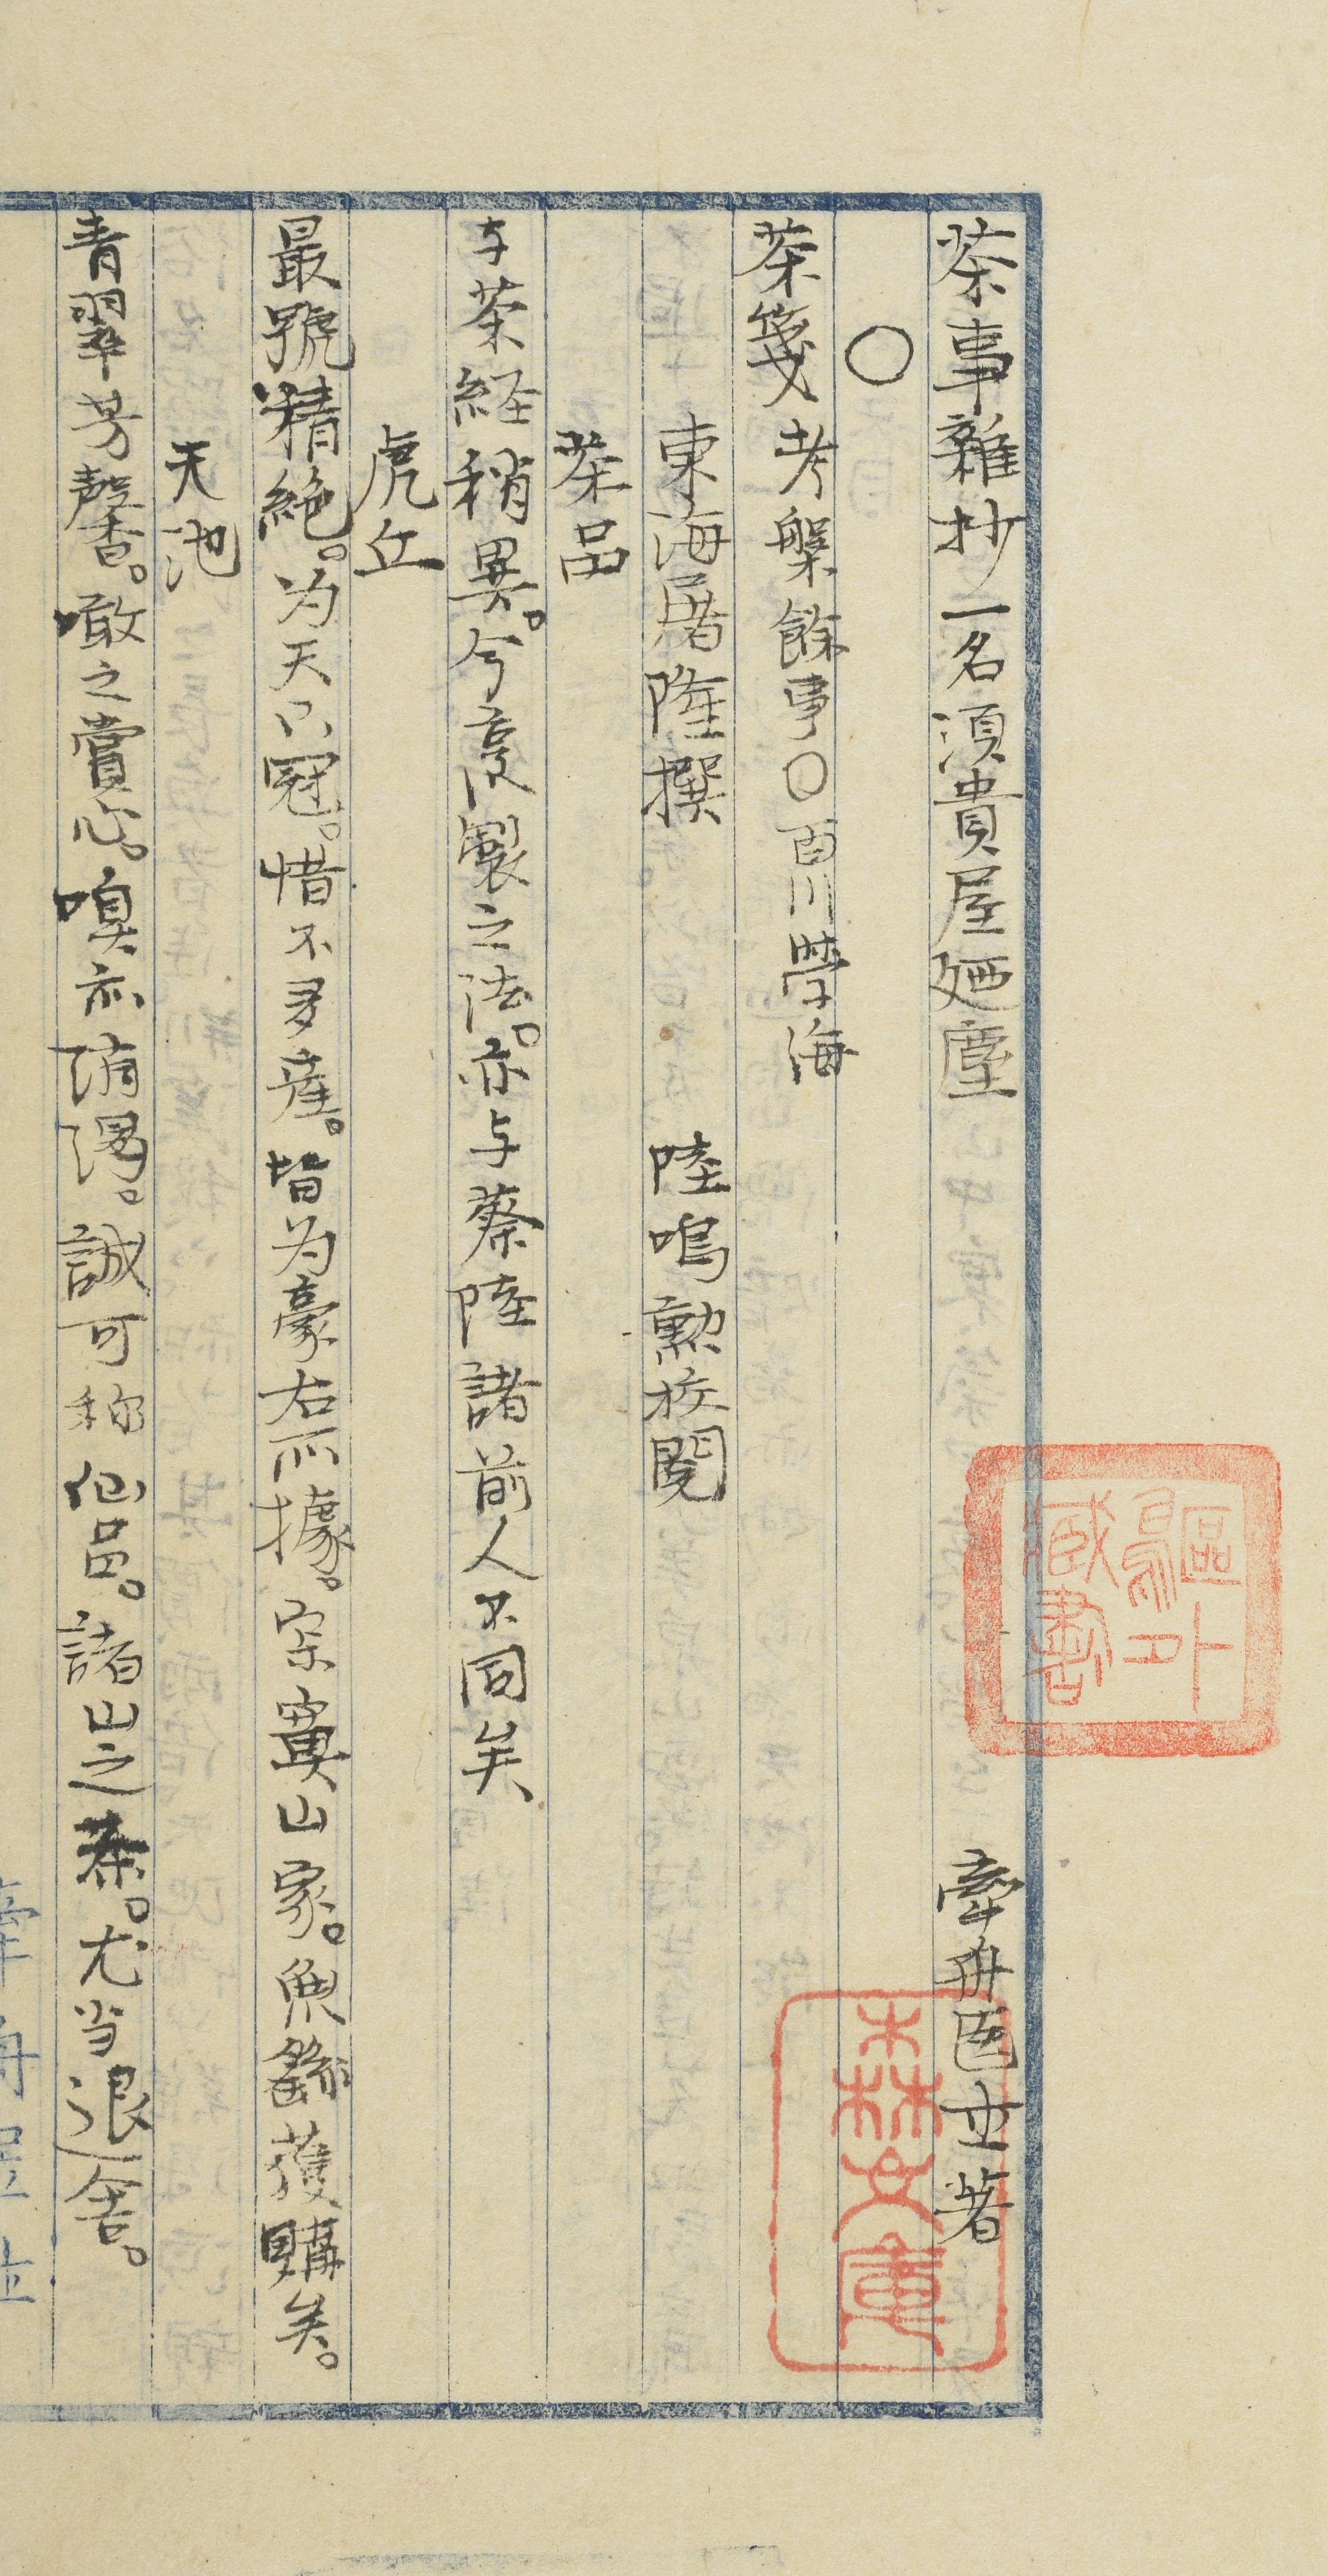 茶事雜抄一名須貴屋廼塵　牽舟居士著
〇
茶箋考槃餘事〇百川學海
東海屠隆撰　陸鳴勲校閲
茶品
与茶経稍異。今烹製之法。亦与蔡陸諸前人不同矣
虎丘
最號精絶。为天下冠。惜不多産。皆为豪右所據。寂寞山家。無繇獲購矣。
天池
青翠芳馨。噉之賞心。嗅亦消渇。誠可称仙品。諸山之茶。尤当退舎。
鷗外
臧書
森文庫